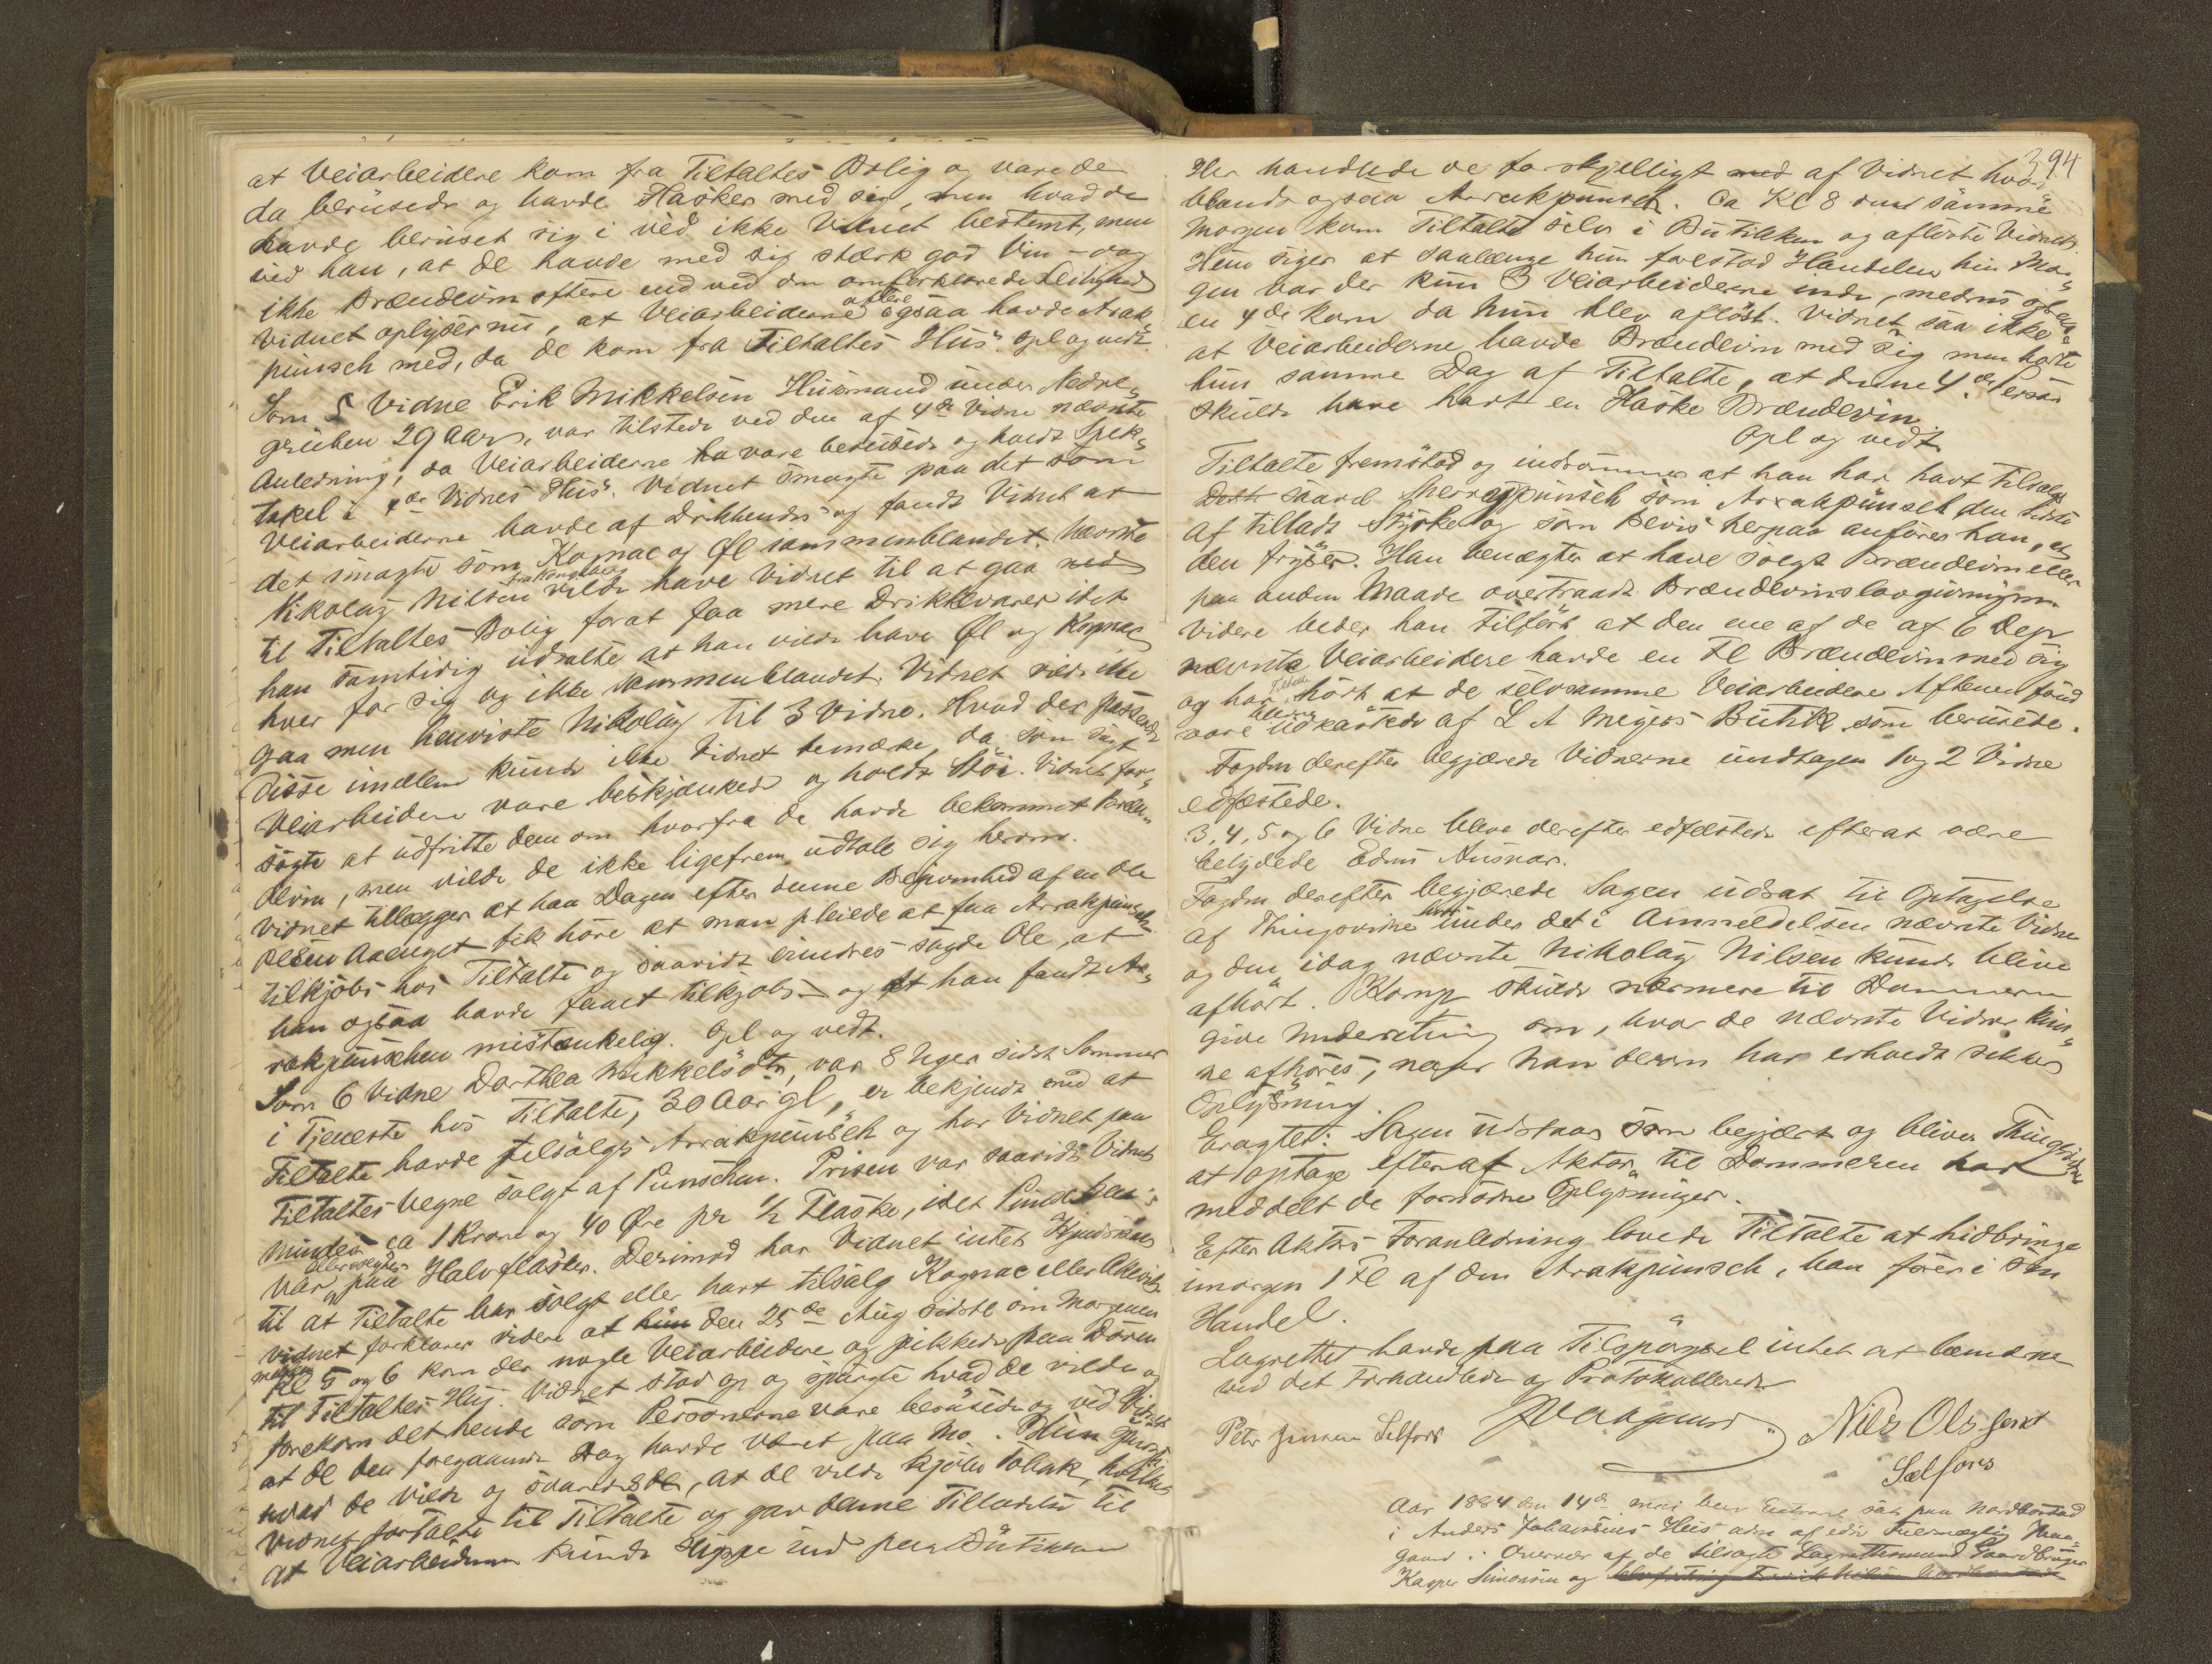 at Veiarbeidere kom fra Tiltaltes Bolig og vare de
da berusede og havde Flasker med sig, men hvad de
havde beruset sig i ved ikke Vidnet bestemt, men
ved han, at de havde med sig stærk god Vin – og
ikke Brændevin oftere end ved den omforklarede Leilighed
Vidnet oplyser nu, at Veiarbeiderne oftere ogsaa havde Arak
punsch med, da de kom fra Tiltaltes Hus. Opl og vedt.
Som 5 Vidne Erik Mikkelsen Husmand under Nedre
gruben 29 Aar, var tilstede ved den af 4de Vidne nævnte
Anledning, da Veiarbeiderne vare berusede og holdt Spek
takel i 4de Vidnes Hus. Vidnet smagte paa det som
Veiarbeiderne havde af Drikkendes og fandt Vidnet at
det smagte som Kognac og Øl sammenblandet. Nævnte
Nikolay Nilsen vilde have Vidnet til at gaa ned
til Tiltaltes Bolig forat faa mere Drikkevarer idet
han samtidig udtalte at han vilde have Øl og Kognac
hver for sig og ikke sammenblandet. Vidnet vilde ikke
gaa men henviste Nikolay til 3 Vidne. Hvad der passerede
disse imellem kunde ikke Vidnet bemærke, da som sagt
Veiarbeidere vare beskjænkede og holdt Støi. Vidnet for
søgte at udfritte dem om hvorfra de havde bekommet Bræn
devin, men vilde de ikke ligefrem udtale sig herom.
Vidnet tillægger at han Dagen efter denne Begivenhed af en Ole
Olsen Aaenget fik høre at man pleiede at faa Arrakpunsch
tilkjøbs hos Tiltalte og saavidt erindres sagde Ole, at
han ogsaa havde faaet tilkjøbs og at han fandt Ar
rakpunschen mistænkelig. Opl og vedt.
Som 6 Vidne Dorthea Mikkelsdtr, var 8 Uger sidst Sommer
i Tjeneste hos Tiltalte, 30 Aar gl, er bekjendt med at
Tiltalte havde tilsalgs Arrakpunsch og har Vidnet paa
Tiltaltes Vegne solgt af Punschen. Prisen var saavidt Vidnet
mindes ca 1 Krone og 40 Øre pr ½ Flaske, idet Punschen
var paa Halvflasker. Derimod har Vidnet intet Kjendskab
til at Tiltalte har solgt eller havt tilsalg Kognac eller Akevit.
Vidnet forklarer videre at den 25de Aug sidstl om Morgenen
mellem Kl 5 og 6 kom der nogle Veiarbeidere og pikkede paa Døren
til Tiltaltes Hus. Vidnet stod op og spurgte hvad de vilde og
forekom det hende som Personerne vare berusede og ved Vidnet
at de den foregaaende Dag havde været paa Mo. Hun spurgte
hvad de vilde og svarede de, at de vilde kjøbe Tobak, hvilket
Vidnet fortalte til Tiltalte og gav denne Tilladelse til
at Veiarbeiderne kunde slippe ind paa Butikken
394
Her handlede de forskjelligt af Vidnet hvor
blandt ogsaa Arrakpunsch. Ca Kl 8 samme
Morgen kom Tiltalte selv i Butikken og afløste Vidnet
Hun siger at saalænge hun forestod Handelen hin Mor
gen var der kun 3 Veiarbeiderne inde, medens
en 4de kom da hun blev afløst. Vidnet saa ikke
at Veiarbeiderne havde Brændevin med sig men hørte
hun samme Dag af Tiltalte, at denne 4de Person
skulde have havt en Flaske Brændevin.
Opl og vedt
Tiltalte fremstod og indrømmer at han har havt tilsalgs
saavel Sherrypunsch som Arrakpunsch den sidste
af tilladt Styrke og som Bevis herpaa anføres han, at
den fryser. Han benægter at have solgt Brændevin eller
paa anden Maade overtraadt Brændevinslovgivningen.
Videre beder han tilført at den ene af de af 6 Dep
nævnte Veiarbeidere havde en Fl Brændevin med sig
og har Tiltalte hørt at de selvsamme Veiarbeidere Aftenen forud
vare blevne udkastede af L A Meyers Butik som berusede.
Fogden derefter begjærede Vidnerne undtagen 1 og 2 Vidne
edfæstede.
3, 4, 5 og 6 Vidne bleve derefter edfæstede efterat være
betydede Edens Ansvar.
Fogden derefter begjærede Sagen udsat til Optagelse
af Thingsvidne under det i Anmeldelsen nævnte Vidne
og den idag nævnte Nikolay Nilsen kunde blive
afhørt. Komp skulde nærmere til Dommeren
give Underretning om, hvor de nævnte Vidner kun
ne afhøres, naar han derom har erholdt sikker
Oplysning.
Eragtet: Sagen udstaar som begjært og bliver Thingsvidne
at optage efterat Aktor til Dommeren har
meddelt de fornødne Oplysninger.
Efter Aktors Foranledning lovede Tiltalte at hidbringe
imorgen 1 Fl af den Arakpunsch, han fører i sin
Handel.
Lagrettet havde paa Tilspørgsel intet at bemærke
ved det Forhandlede og Protokollerede
Peter Jensen Selfors
Nils Olsen
Selfors
Aar 1884 den 14de mai blev Extraret sat paa Nordbostad
i Anders Johansens Hus adm af edsv Fuldmægtig Haa
gaard i Overvær af de tilsagte Lagrettesmænd Gaardbruger
Kasper Simonsen og